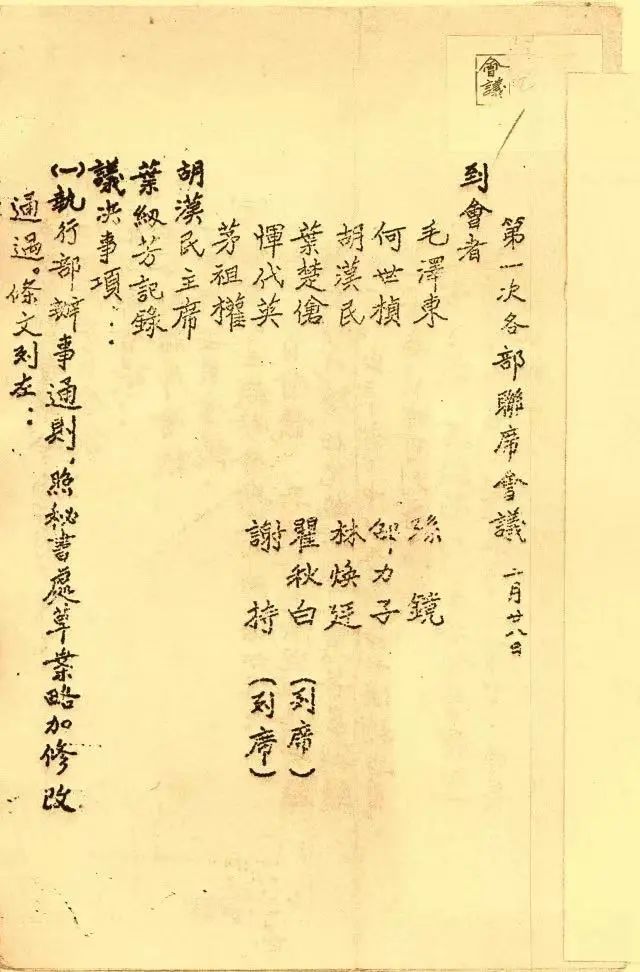 會議
第一次各部聯席會議 二月廿八日
到會者
毛澤東 孫鏡
何世楨 邵力子
胡漢民 林煥廷
葉楚傖 瞿秋白(列席)
惲代英 謝持(列席)
茅祖權
胡漢民主席
葉紉芳記錄
議決事項：
(一)執行部辦事通則，照秘書處草案略加修改
通過。條文列左：